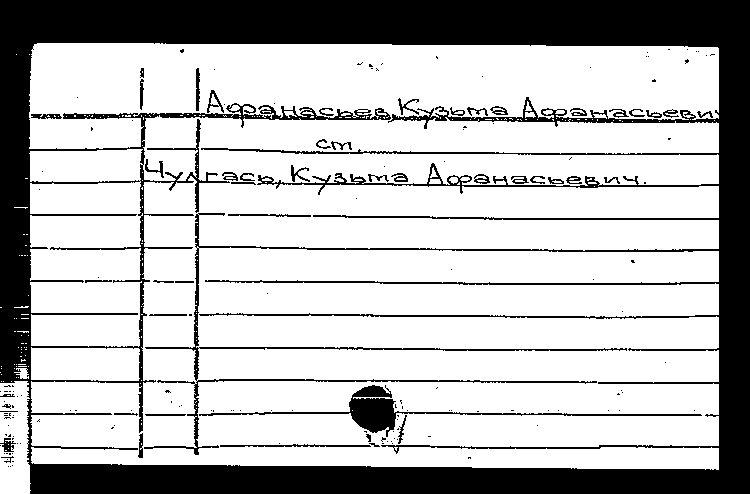 Афанасьев, Кузьма Афанасьевич
ст.
Чулгась, Кузьма Афанасьевич.